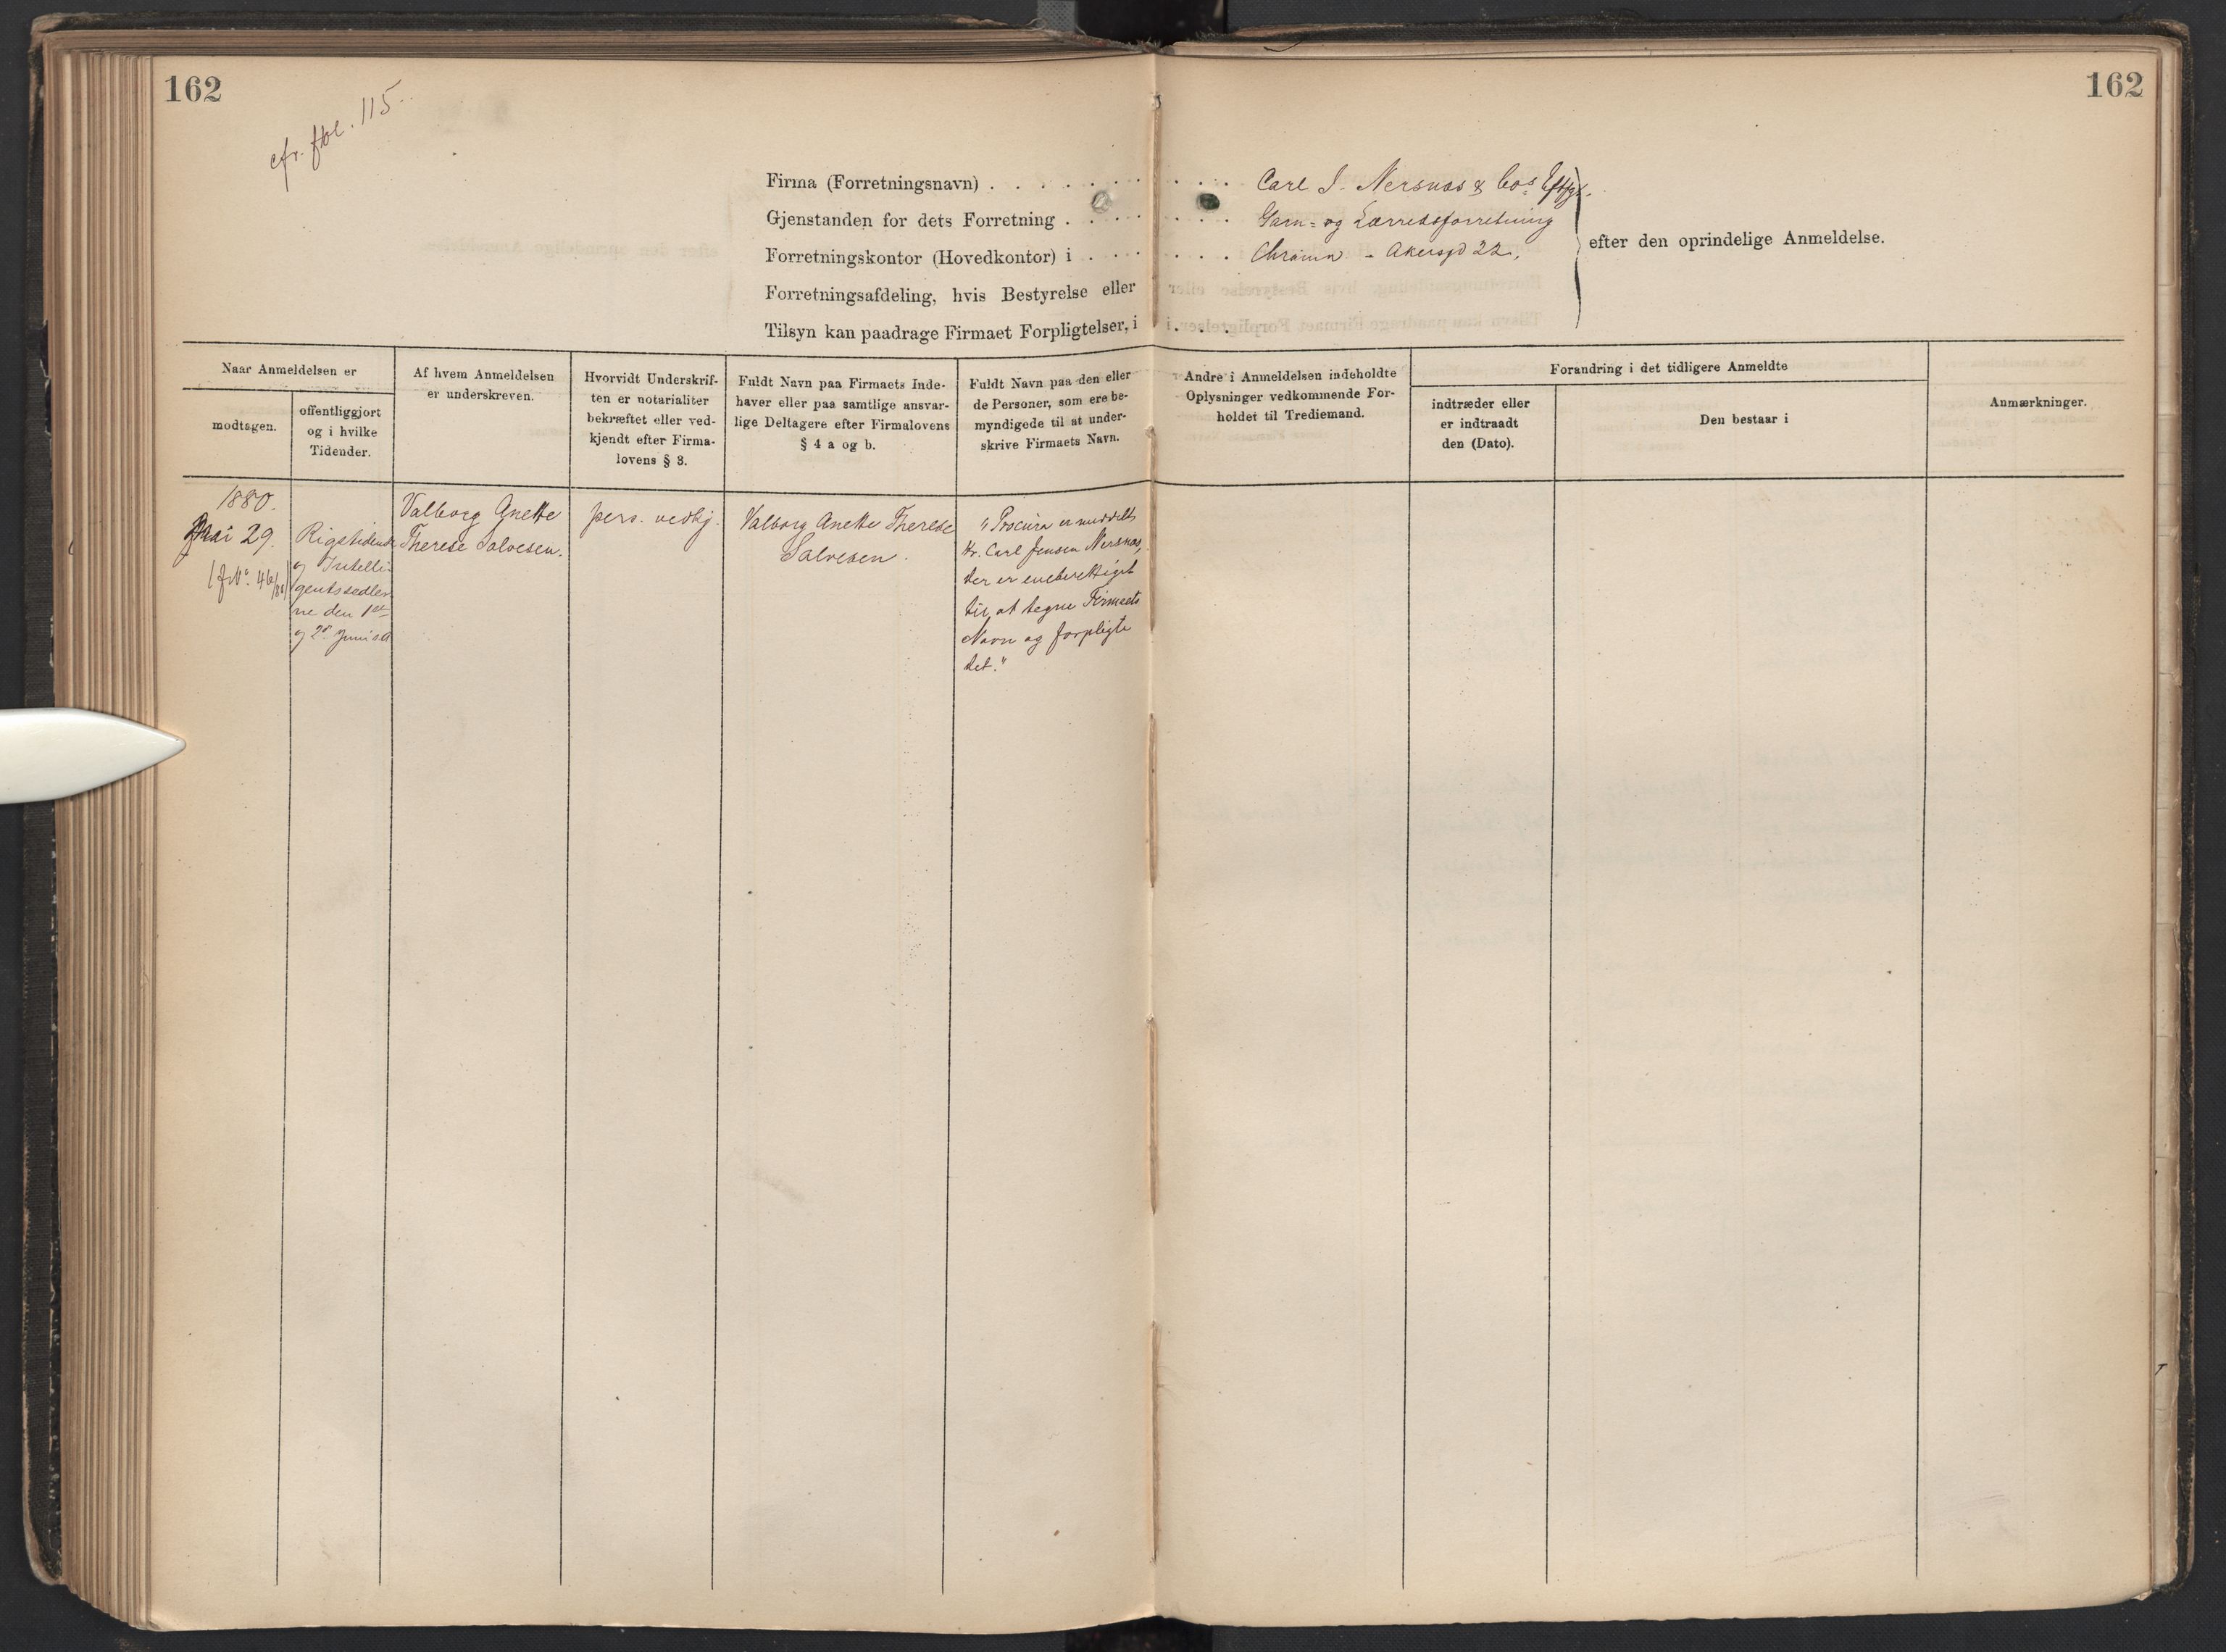 162
162
cfr. fol. 115.
Firma (Forretningsnavn) . . . . . . . . . Carl J. Nersnæs & Co's Eftfgr.
Gjenstanden for dets Forretning . . . . . . . Garn- og Lærredsforretning
Forretningskontor (Hovedkontor) i . . . . . . . Chrania - Akersgd 22.
efter den oprindelige Anmeldelse.
Forretningsafdeling, hvis Bestyrelse eller
Tilsyn kan paadrage Firmaet Forpligtelser, i . . .
Naar Anmeldelsen er
modtagen.
offentliggjort
og i hvilke
Tidender.
Af hvem Anmeldelsen
er underskreven.
Hvorvidt Underskrif-
ten er notarialiter
bekræftet eller ved-
kjendt efter Firma-
lovens § 3.
Fuldt Navn paa Firmaets Inde-
haver eller paa samtlige ansvar-
lige Deltagere efter Firmalovens
§ 4 a og b.
Fuldt Navn paa den eller
de Personer, som ere be-
myndigede til at under-
skrive Firmaets Navn.
Andre i Anmeldelsen indeholdte
Oplysninger vedkommende For-
holdet til Trediemand.
Forandring i det tidligere Anmeldte
indtræder eller
er indtraadt
den (Dato).
Den bestaar i
Anmærkninger.
1880.
Mai 29.
Rigstidende
og Intelli-
gentssedler-
ne den 1ste
og 2d Juni
Valborg Anette
Therese Salvesen.
pers. vedkj.
Valborg Anette Therese
Salvesen.
"Procura er meddelt
Hr. Carl Jensen Nersnæs,
der er eneberettiget
til at tegne Firmaets
Navn og forpligte
det."